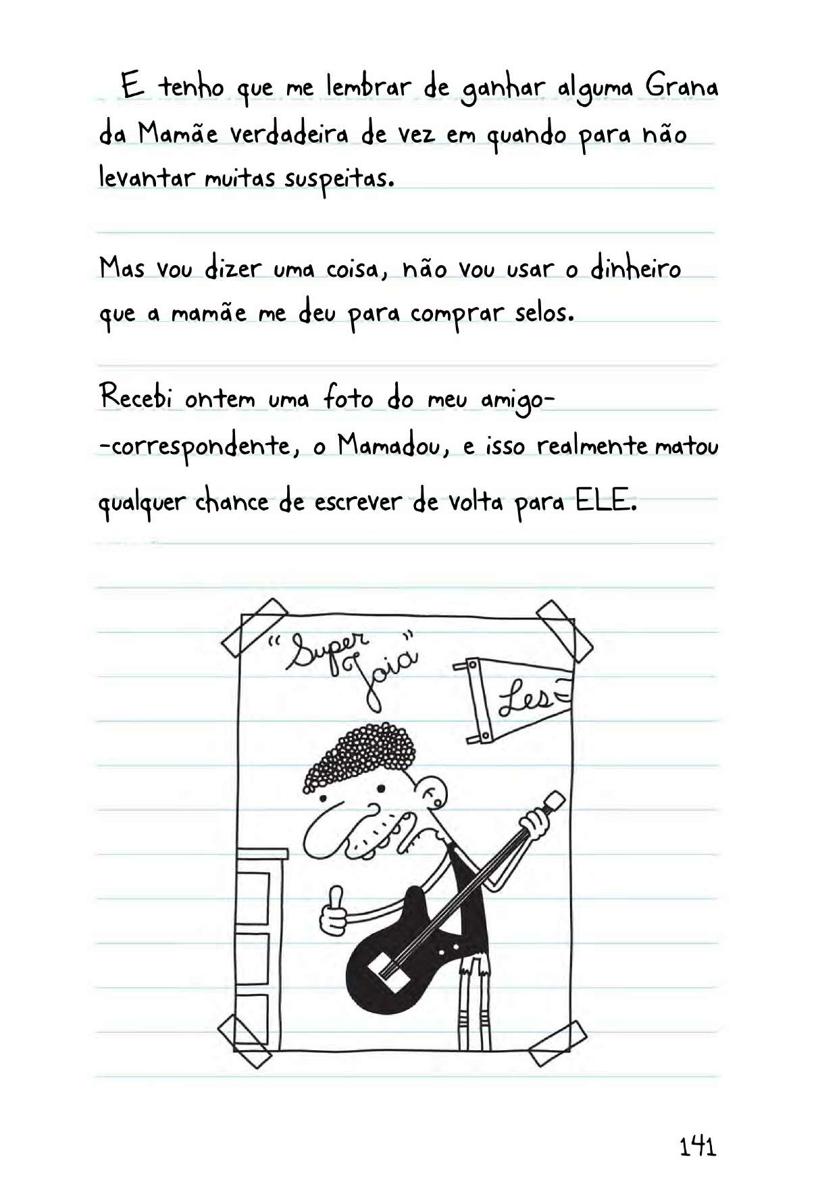 E tenho que me lembrar de ganhar alguma Grana
da Mamãe verdadeira de vez em quando para não
levantar muitas suspeitas.
Mas vou dizer uma coisa, não vou usar o dinheiro
que a mamãe me deu para comprar selos.
Recebi ontem uma foto do meu amigo-
-correspondente, o Mamadou, e isso realmente matou
qualquer chance de escrever de volta para ELE.
"Super
Joia"
Les
141